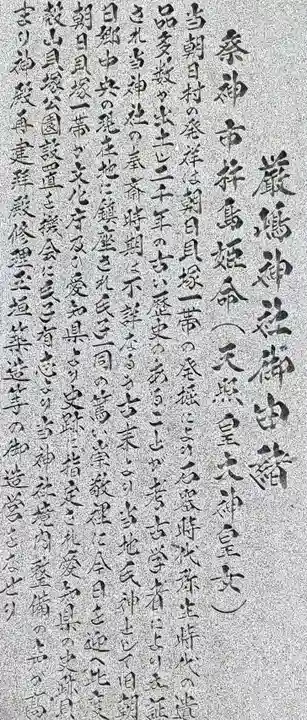 厳島神社御由緒
祭神 市杵島姫命(天照皇大神皇女)
当朝日村の発祥は朝日貝塚一帯の発掘により石器時代弥生時代の遺
品多数が出土し二千年の古い歴史のあることが考古学者により立証
され当神社の奉斎時期は不詳なるも古来より当地氏神として旧朝
日郷中央の現在地に鎮座され氏子一同の篤い崇敬裡に今日を迎へ此度
朝日貝塚一帯が文化庁及び愛知県より史跡に指定され愛知県の史跡貝
殻山貝塚公園設置を機会に氏子有志により当神社境内整備の
まり神殿再建拝殿修理玉垣築造等の御造営をなせり